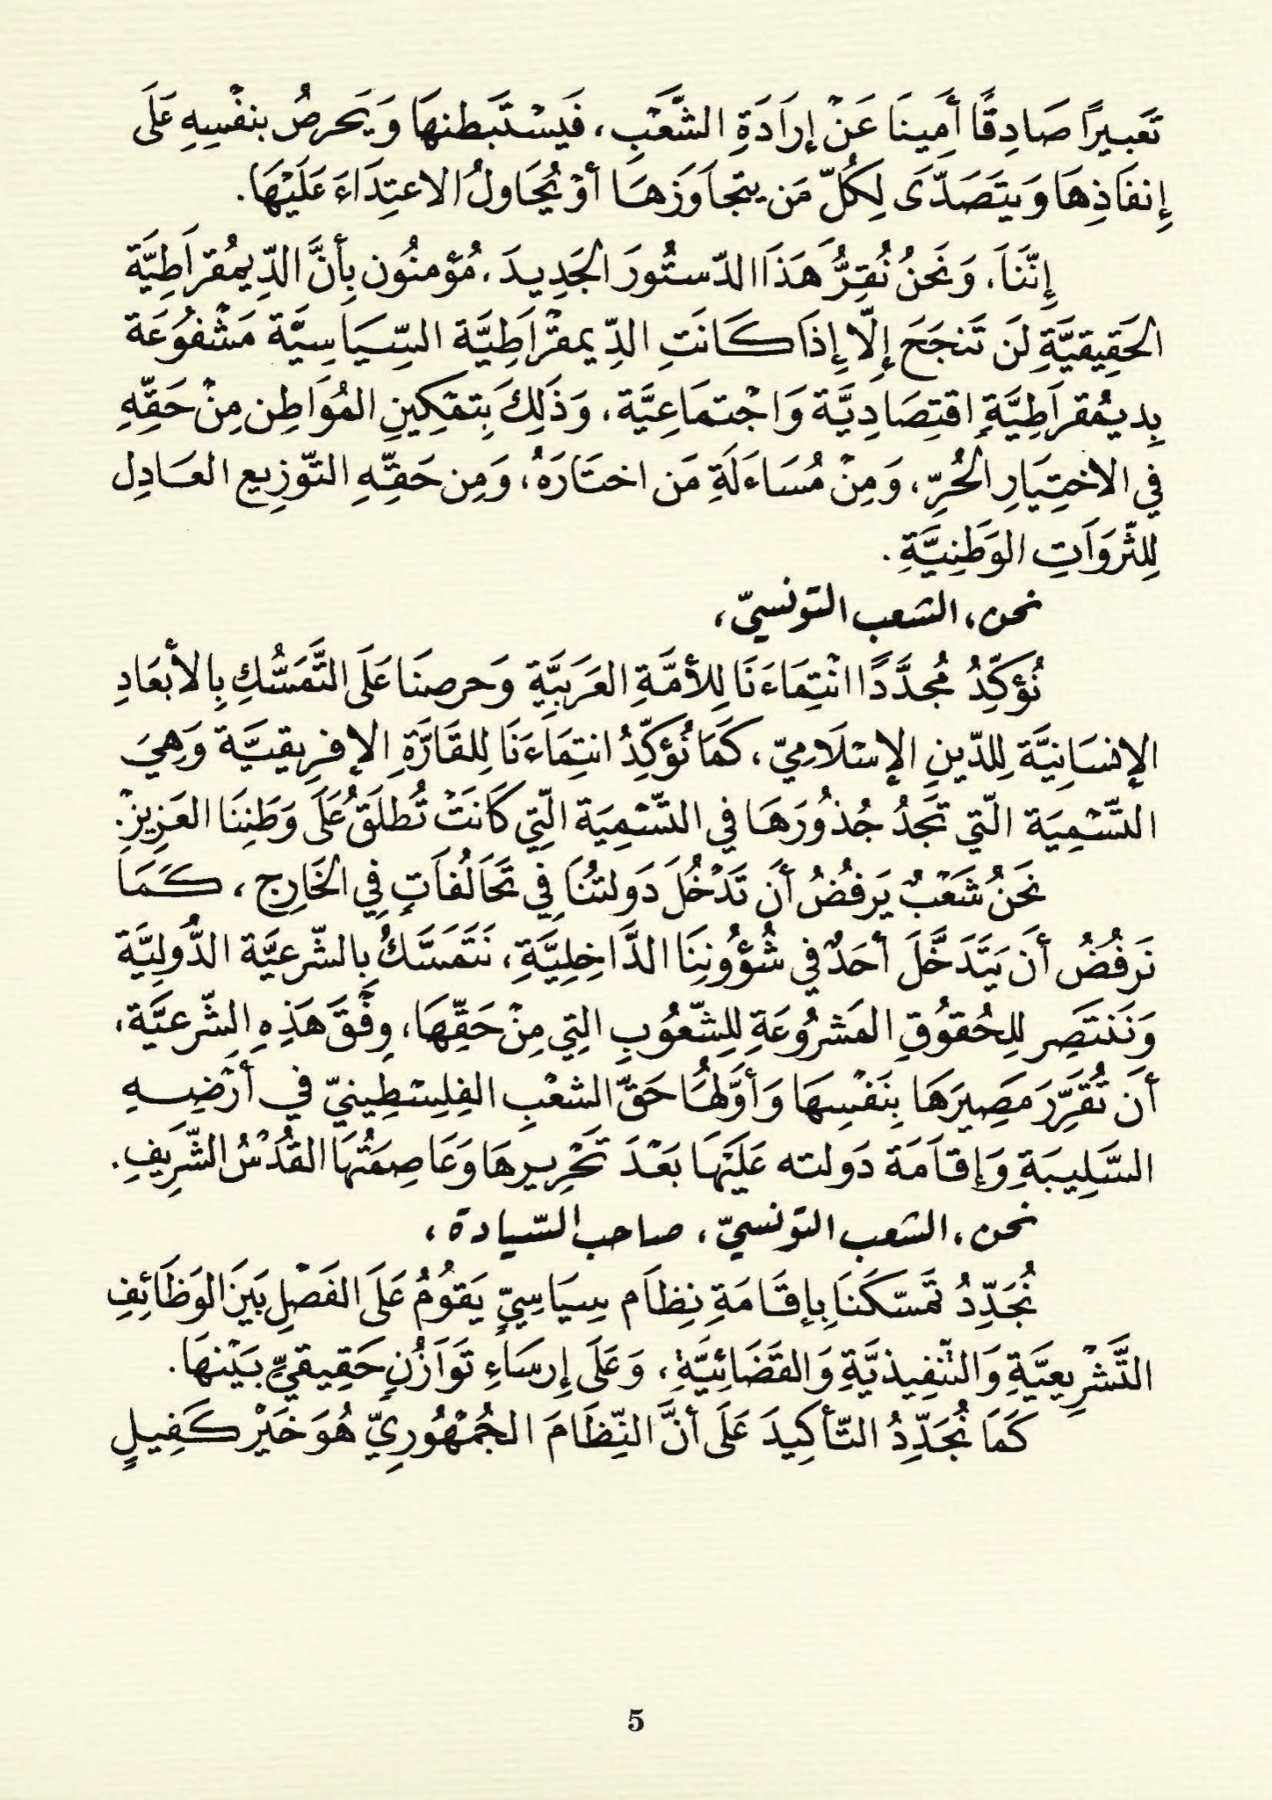 تَعبيرًا صَادِقًا أَمِينَا عَنْ إرَادَةِ الشَّعَبِ، فَيَسْتَبطنهَا وَيَحرصُ بنفْسِهِ عَلَى
إِنفَاذِهَا وَيتَصَدّى لِكُلّ مَن يتجاوَزهَا أوْ يُحَاولُ الاعتِدَاءَ عَلَيْهَا.
إِنّنَا، وَنَحنُ نُقِرُّ هَذَا الدّستُورَ الجَدِيدَ، مُؤمنُون بِأنَّ الدِّيمُقرَاطِيَّة
الحَقِيقيَّةِ لَن تَنجَحَ إِلّا إِذَا كَانَتِ الدِّيمقْرَاطِيَّة السِّيَاسِيَّة مَشْفُوعَة
بِديمُقرَاطِيَّةٍ اقتِصَادِيَّة وَاجْتمَاعِيَّة، وَذَلِكَ بِتمْكِينِ المُوَاطِن مِنْ حَقِّهِ
فِي الاختِيَارِ الحُرِّ، وَمِنْ مُسَاءَلَةِ مَن اختَارَهُ، وَمِن حَقِّهِ التّوزِيع العَادِل
لِلثّروَاتِ الوَطَنِيَّةِ.
نحن، الشعب التونسيّ،
نُؤكِّدُ مُجدَّدًا انْتِمَاءَنَا لِلأمَّةِ العَرَبيَّةِ وَحرصنَا عَلَى التَّمَسُّكِ بِالأبعَادِ
الإنسَانيَّة لِلدّينِ الإسْلَامِيّ، كَمَا نُؤكِّدُ انتِمَاءَنَا لِلقَارَّةِ الإفرِيقيَّة وَهِيَ
التَّسْمِيَة الّتي تَجدُ جُذُورَهَا في التّسْمِيَة الّتِي كَانَتْ تُطلَقُ عَلَى وَطَنِنَا العَزِيزِ.
نَحَنُ شَعْبٌ يَرفُضُ أَن تَدْخُلَ دَولتُنَا فِي تَحَالُفَاتٍ فِي الخَارِج، كَمَا
نَرفُضُ أَن يَتَدَخَّلَ أَحَدٌ في شُؤُونِنَا الدَّاخِلِيَّةِ، نَتَمَسَّكُ بِالشّرعيَّة الدُّولِيَّة
وَنَنتَصِر لِلحُقوُقِ المَشرُوعَةِ لِلشّعُوبِ التِي مِنْ حَقِّهَا، وِفَْقَ هَذِهِ الشّرعيَّة،
أَن تُقَرِّرَ مَصِيرَهَا بِنَفْسِهَا وَأوَّلهَُا حَقّ الشعْبِ الفِلِسْطِينيّ في أرْضِهِ
السَّلِيبَةِ وَإقَامَة دَولته عَلَيْهَا بَعْدَ تَحْرِيرِهَا وَعَاصِمَتُهَا القُدْسُ الشّرِيفِ.
نحن، الشعب التونسيّ، صاحب السّيادة،
نُجَدِّدُ تمَسّكَنَا بِإقَامَةِ نِظَام سِيَاسِيٍّ يَقوُمُ عَلَى الفَصْلِ بَينَ الوَظَائِفِ
التَّشْرِيعِيَّةِ وَالتّنْفِيذيَّةِ وَالقَضَائِيَّةِ، وَعَلَى إِرسَاءِ تَوَازُنٍ حَقِيقيٍّ بَيْنهَا.
كَمَا نُجَدِّدُ التّأكِيدَ عَلَى أنَّ النِّظَامَ الجُمْهُورِيّ هُوَ خَيْر كَفِيلٍ
5